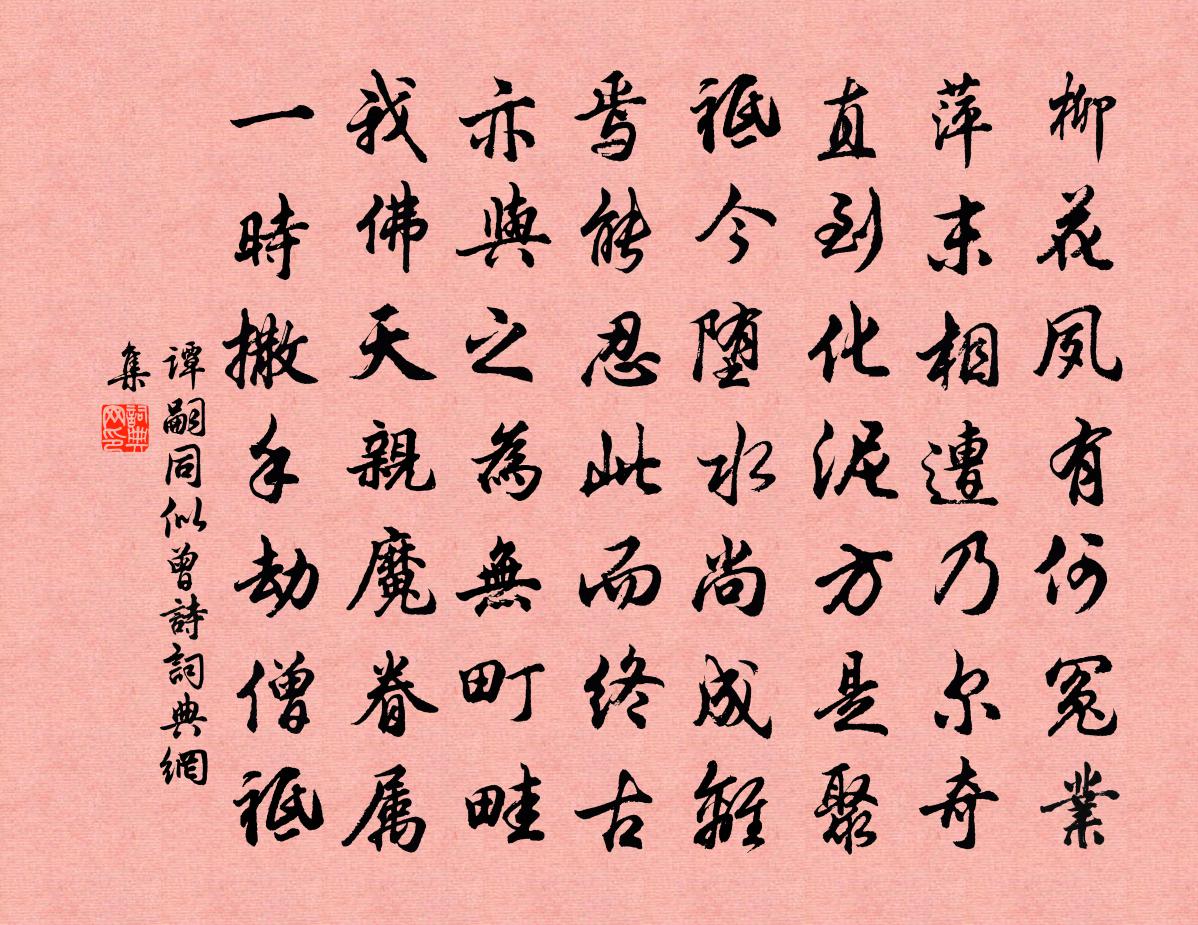 柳花夙有何冤業
萍末相遭乃尔奇
直到化泥方是聚
祗今堕水尚成離
焉能忍此而終古
亦與之為無町畦
我佛天親魔眷属
一時撒手劫僧祗
譚嗣同似曾詩詞典網
集
詞典網印